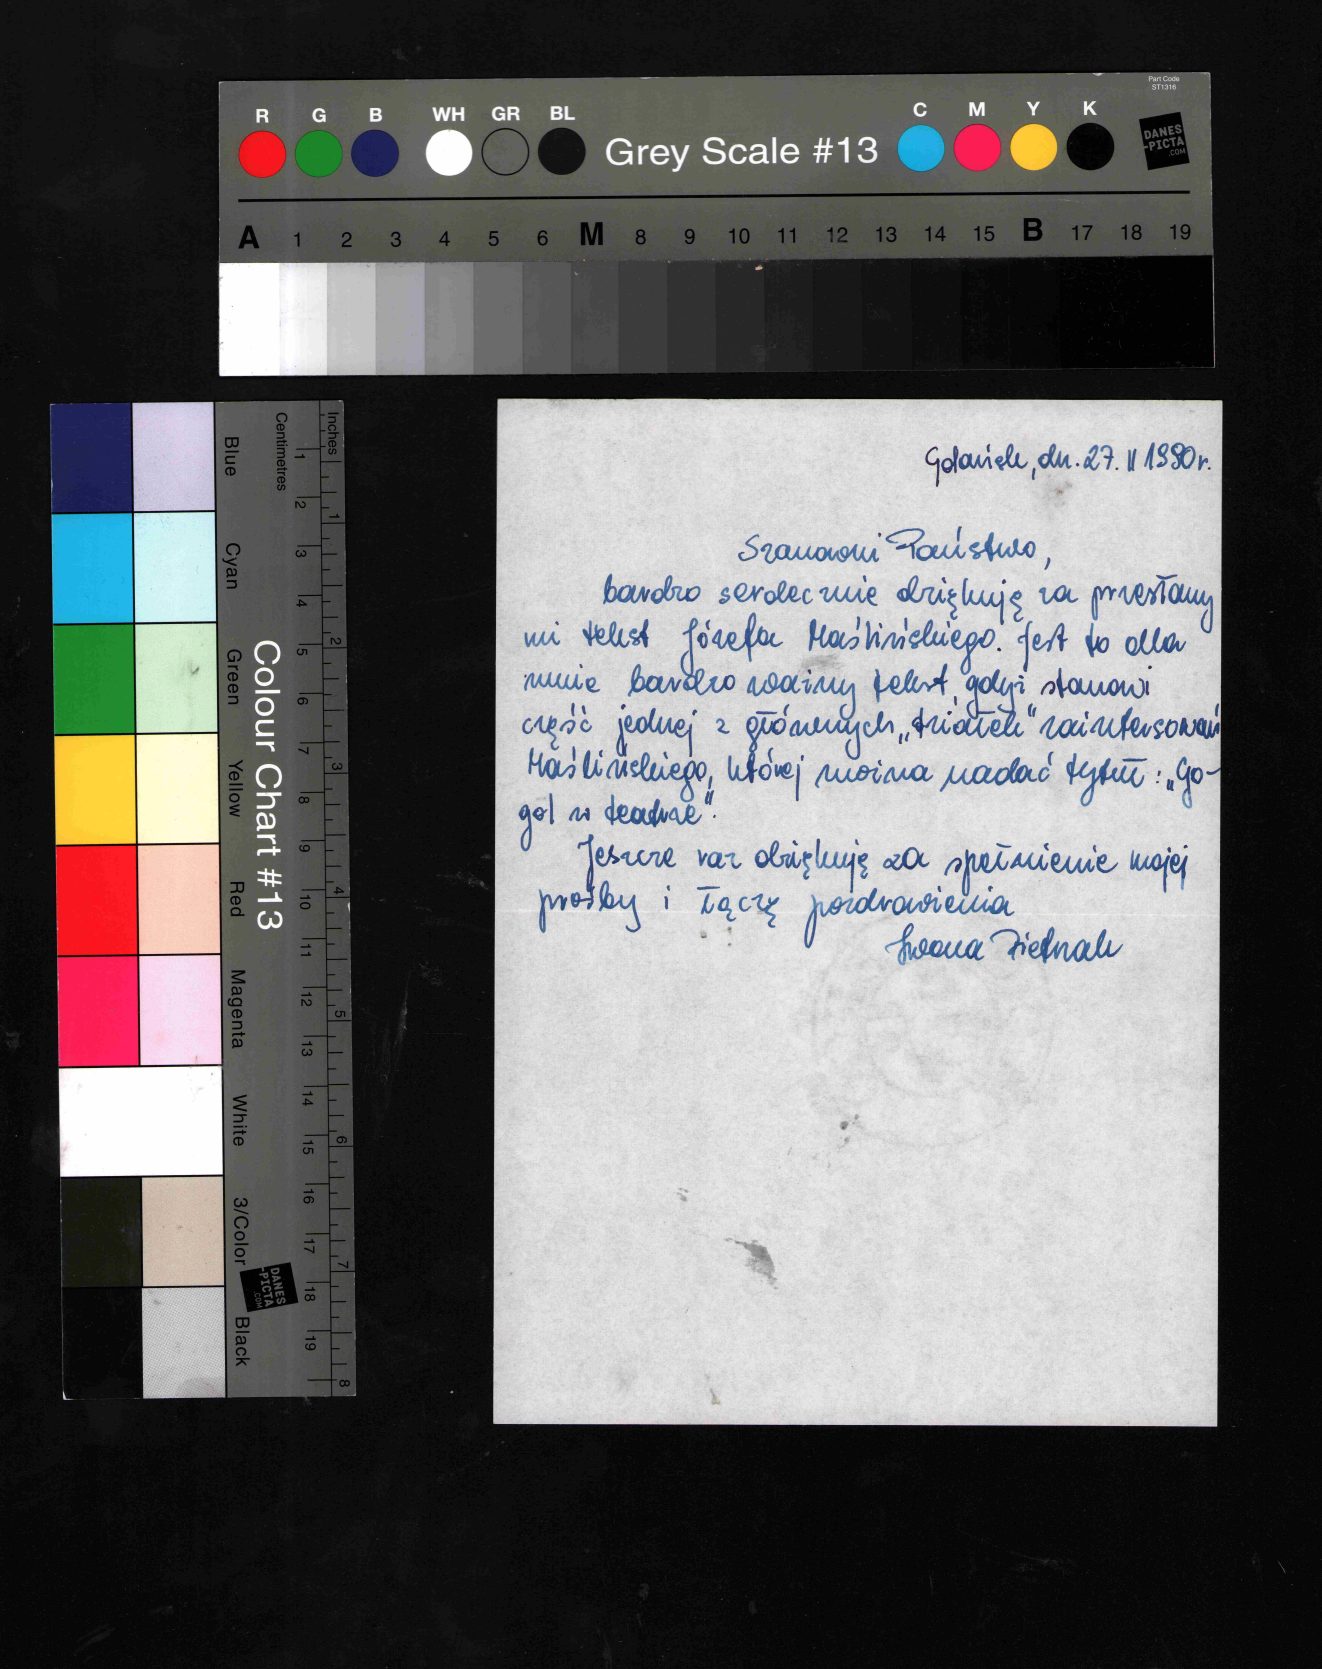 Part Code
ST1316
R G B WH GR BL Grey Scale #13 C M Y K
DANES
-PICTA
.COM
A 1 2 3 4 5 6 M 8 9 10 11 12 13 14 15 B 17 18 19
Colour Chart #13
Blue Cyan Green Yellow Red Magenta White 3/Color Black
Centimetres 1 2 3 4 5 6 7 8 9 10 11 12 13 14 15 16 17 18 19
Inches 1 2 3 4 5 6 7 8
DANES
-PICTA
.COM
Gdańsk, dn. 27. II 1990 r.
Szanowni Państwo,
bardzo serdecznie dziękuję za przesłany
mi tekst Józefa Maślińskiego. Jest to dla
mnie bardzo ważny tekst, gdyż stanowi
część jednej z głównych „działek" zainteresowań
Maślińskiego, której można nadać tytuł: „Go-
gol w teatrze".
Jeszcze raz dziękuję za spełnienie mojej
prośby i łączę pozdrowienia
Iwona